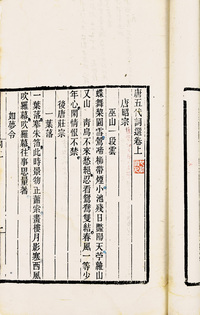 唐五代詞選卷上
唐昭宗
巫山一段雲
蝶舞梨園雪鶯啼柳帶煙小池殘日豔陽天苧蘿山
又山 青鳥不來愁絕忍看鴛鴦雙結春風一等少
年心閒情恨不禁
後唐莊宗
一葉落
一葉落褰朱箔此時景物正蕭索畫樓月影寒西風
吹羅幕吹羅幕往事思量著
如夢令